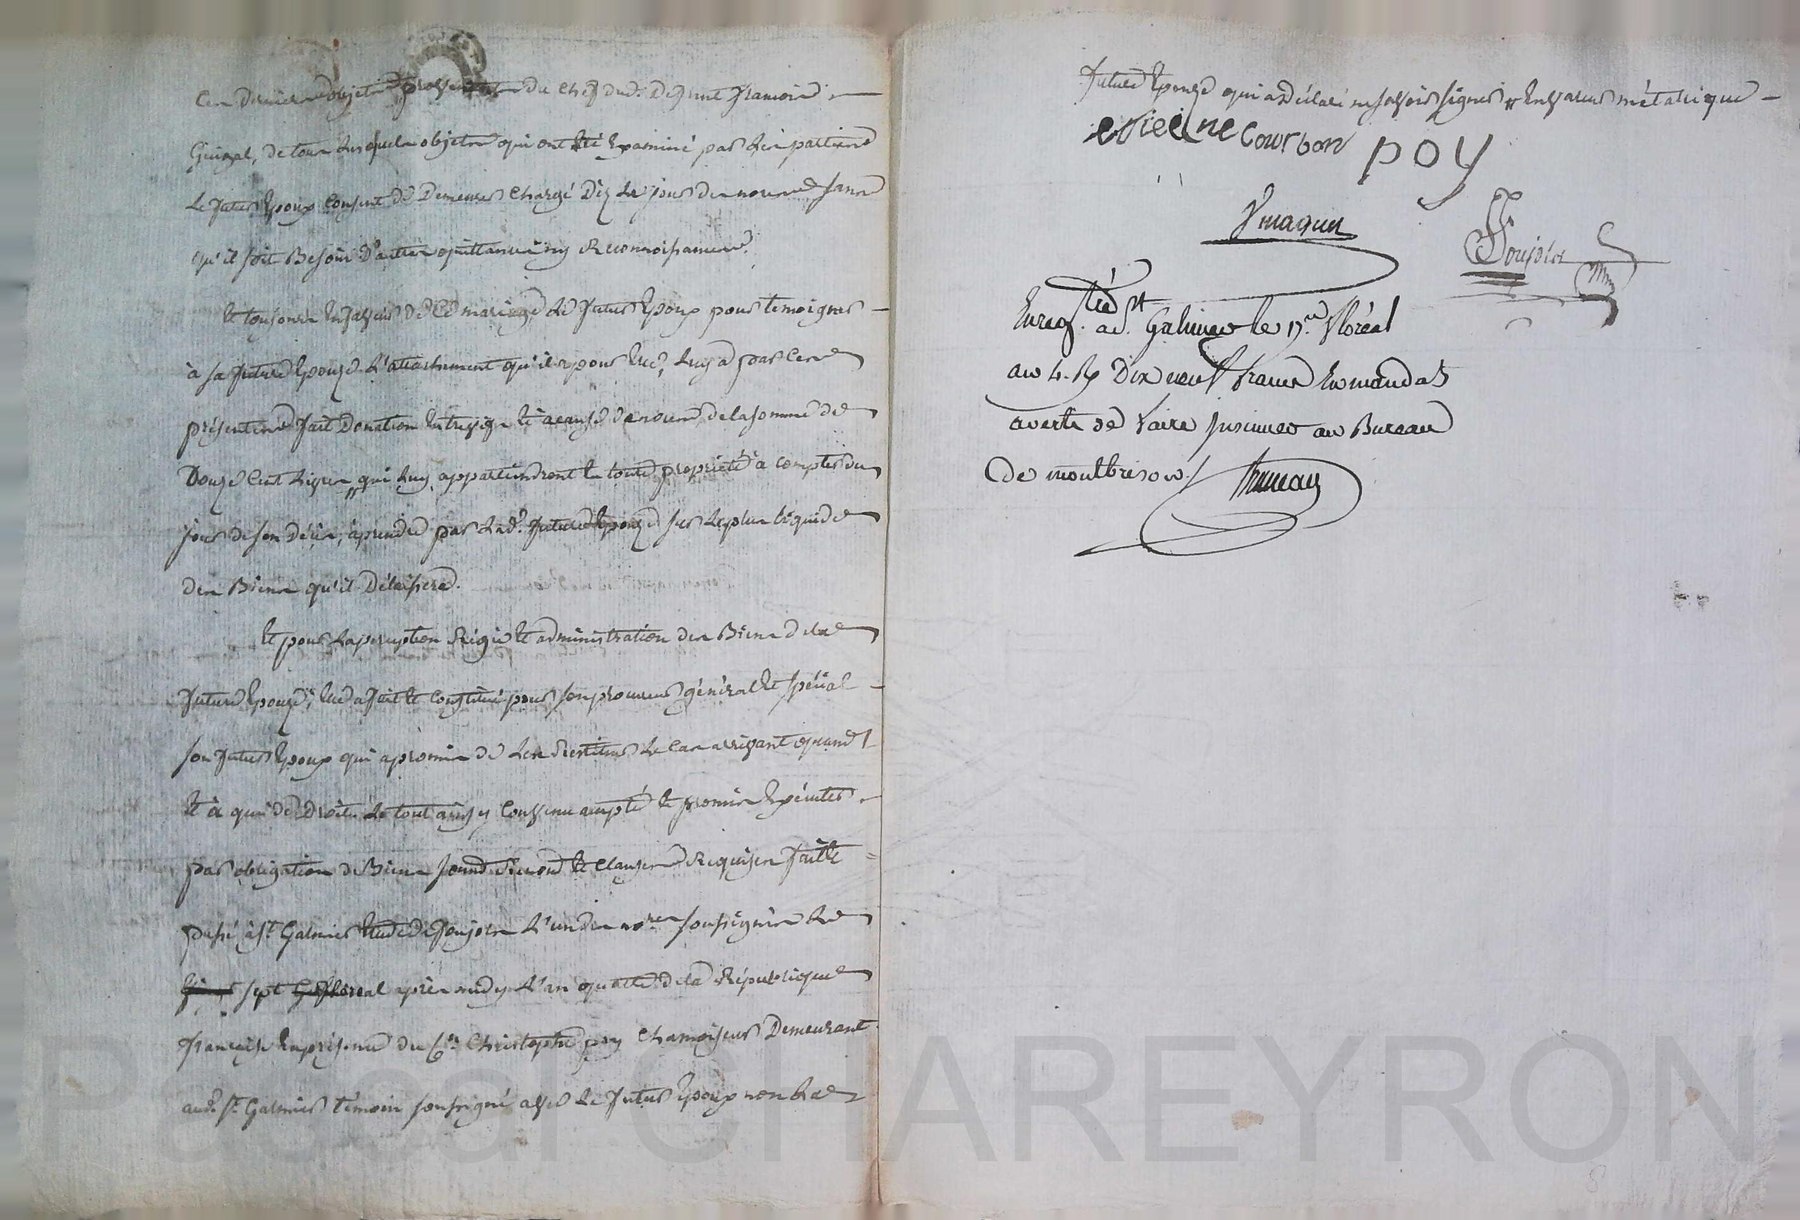 Ces derniers objets provenant du chef dud. Defunt francois
Guinal, de tous lesquels objets qui ont été Examiné par les parties
Le futur Epoux consent de Demeurer chargé Dez le jour des noces sans
qu'il soit Besoin D'autre quittance ny Reconnoissance.
Et toujours En faveur de Ce mariage Le futur Epoux pour temoigner
à sa future Epouze L'attachement qu'il a pour Elle, Luy a par Ces
présentes fait Donation Entrevifs et à cause de noces de la somme de
Douze Cent Livres qui Luy appartiendront En toute propriété à compter du
jour de son décès, à prendre par Lad. future Epouze sur Le plus liquide
des Biens qu'il Délaissera.
Et pour La perception Régie Et administration des Biens de la
future Epouze, Elle a fait Et constitué pour son procureur général Et spécial
son futur Epoux qui a promis de Les Restituer Le Cas arrivant quand
Et à qui de Droit. Le tout ainsy Convenu accepté Et promis Exécuter
par obligation de Biens soumd. Renond. Et Clauses Requises fait Et
passé à St. Galmier Etude de Soujols L'un des nores soussignés Le
sept floréal après midy L'an quatre de la République
françaize En présence du Cen. Christophe poy Chamoiseur Demeurant
aud. St. Galmier témoin soussigné avec Le futur Epoux non La
future Epouze qui a Déclaré ne savoir signer En valeur métalique
etieine Courbon poy
Enregtré. a St. Galmier le 17 floréal
an 4. R/ Dix neuf francs En mandats
averti de faire insinuer au Bureau
de montbrison
Pascal CHAREYRON